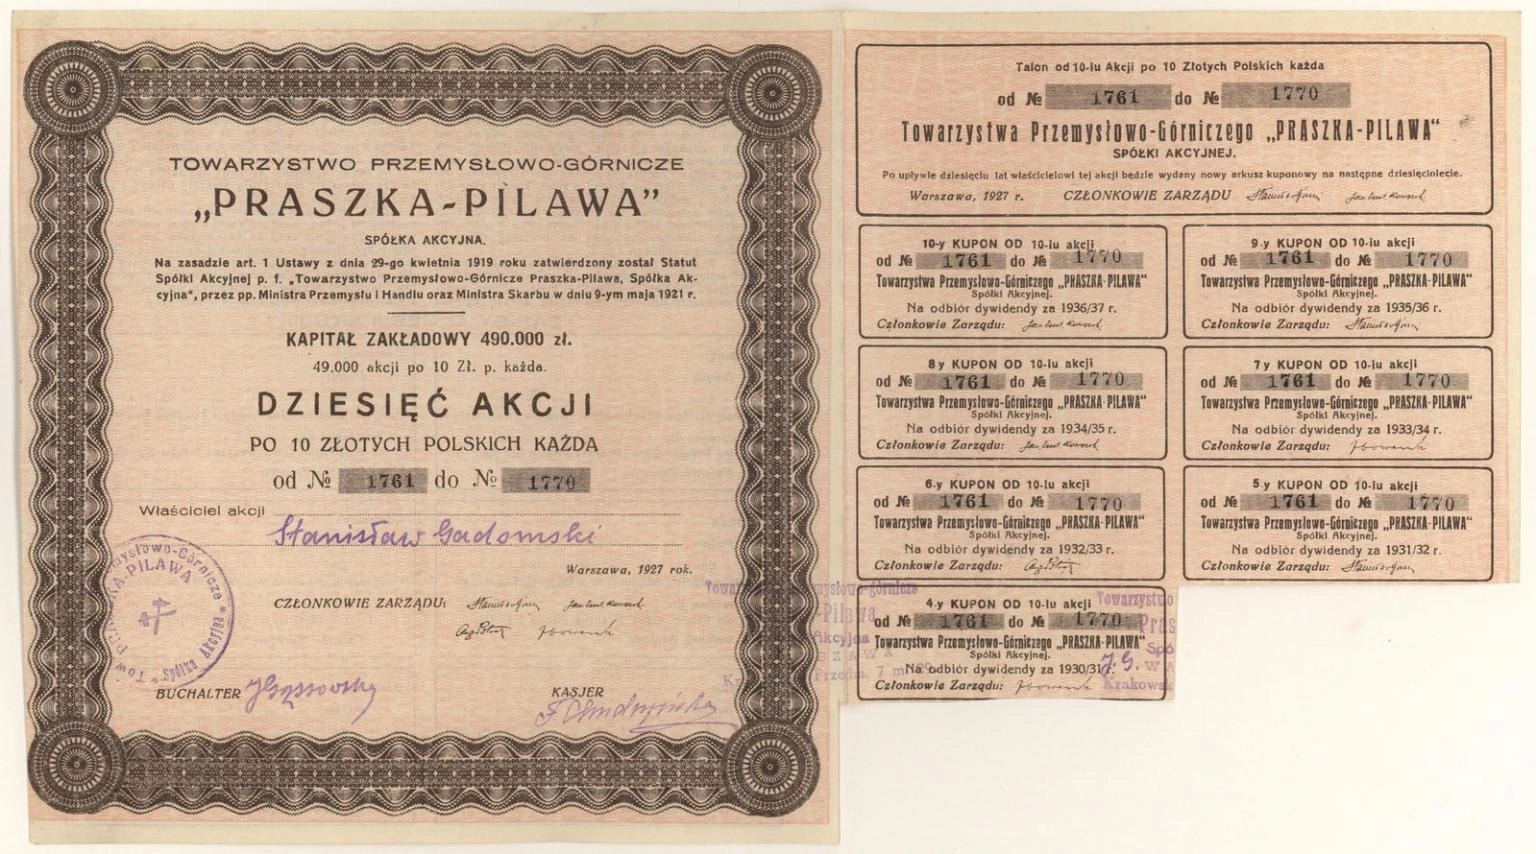 TOWARZYSTWO PRZEMYSŁOWO-GÓRNICZE
„PRASZKA-PILAWA”
SPÓŁKA AKCYJNA.
Na zasadzie art. 1 Ustawy z dnia 29-go kwietnia 1919 roku zatwierdzony został Statut
Spółki Akcyjnej p. f. „Towarzystwo Przemysłowo-Górnicze Praszka-Pilawa, Spółka Ak-
cyjna“, przez pp. Ministra Przemysłu i Handlu oraz Ministra Skarbu w dniu 9-ym maja 1921 r.
KAPITAŁ ZAKŁADOWY 490.000 zł.
49.000 akcji po 10 Zł. p. każda.
DZIESIĘĆ AKCJI
PO 10 ZŁOTYCH POLSKICH KAŻDA
od № 1761 do № 1770
Właściciel akcji
Stanisław Gadomski
Warszawa, 1927 rok.
CZŁONKOWIE ZARZĄDU:
BUCHALTER
KASJER
Tow. Przemysłowo-Górnicze
PRASZKA-PILAWA
Spółka Akcyjna
Talon od 10-iu Akcji po 10 Złotych Polskich każda
od № 1761 do № 1770
Towarzystwa Przemysłowo-Górniczego „PRASZKA-PILAWA“
SPÓŁKI AKCYJNEJ.
Po upływie dziesięciu lat właścicielowi tej akcji będzie wydany nowy arkusz kuponowy na następne dziesięciolecie.
Warszawa, 1927 r. CZŁONKOWIE ZARZĄDU
10-y KUPON OD 10-iu akcji
od № 1761 do № 1770
Towarzystwa Przemysłowo-Górniczego „PRASZKA-PILAWA“
Spółki Akcyjnej.
Na odbiór dywidendy za 1936/37 r.
Członkowie Zarządu:
9-y KUPON OD 10-iu akcji
od № 1761 do № 1770
Towarzystwa Przemysłowo-Górniczego „PRASZKA-PILAWA“
Spółki Akcyjnej.
Na odbiór dywidendy za 1935/36 r.
Członkowie Zarządu:
8-y KUPON OD 10-iu akcji
od № 1761 do № 1770
Towarzystwa Przemysłowo-Górniczego „PRASZKA-PILAWA“
Spółki Akcyjnej.
Na odbiór dywidendy za 1934/35 r.
Członkowie Zarządu:
7-y KUPON OD 10-iu akcji
od № 1761 do № 1770
Towarzystwa Przemysłowo-Górniczego „PRASZKA-PILAWA“
Spółki Akcyjnej.
Na odbiór dywidendy za 1933/34 r.
Członkowie Zarządu:
6-y KUPON OD 10-iu akcji
od № 1761 do № 1770
Towarzystwa Przemysłowo-Górniczego „PRASZKA-PILAWA“
Spółki Akcyjnej.
Na odbiór dywidendy za 1932/33 r.
Członkowie Zarządu:
5-y KUPON OD 10-iu akcji
od № 1761 do № 1770
Towarzystwa Przemysłowo-Górniczego „PRASZKA-PILAWA“
Spółki Akcyjnej.
Na odbiór dywidendy za 1931/32 r.
Członkowie Zarządu:
4-y KUPON OD 10-iu akcji
od № 1761 do № 1770
Towarzystwa Przemysłowo-Górniczego „PRASZKA-PILAWA“
Spółki Akcyjnej.
Na odbiór dywidendy za 1930/31 r.
Członkowie Zarządu:
Towarzystwo
Pras
Spó
WA
Krakowsk